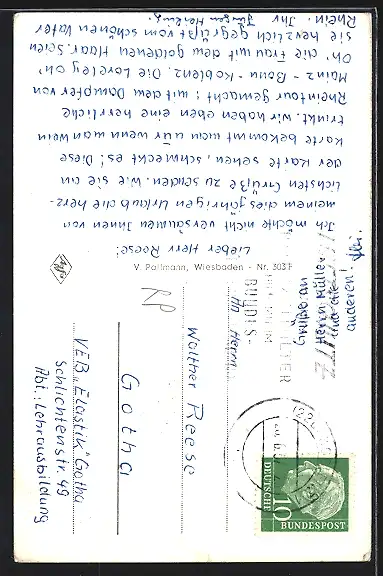 Lieber Herr Reese!
Ich möchte nicht versäumen Ihnen von
meinem diesjährigen Urlaub die herz-
lichsten Grüße zu senden. W.e. Sie an
der Karte sehen, schmeckt es! Diese
Karte bekommt man nur wenn man Wein
trinkt. Wir haben eben eine herrliche
Rheintour gemacht; mit dem Dampfer von
Mainz - Bonn - Koblenz. Die Loreley oh'
Oh' die Frau mit dem goldenen Haar. Seien
Sie herzlich gegrüßt vom schönen Vater
Rhein. Ihr Jürgen
Grüße an
Herrn Müller
anderen!
V. Pollmann, Wiesbaden - Nr. 303
Agfa
An Herrn
Walther Reese
Gotha
VEB „Elastik" Gotha
Schlichtenstr. 49
Abt.: Lehrausbildung
10
DEUTSCHE
BUNDESPOST